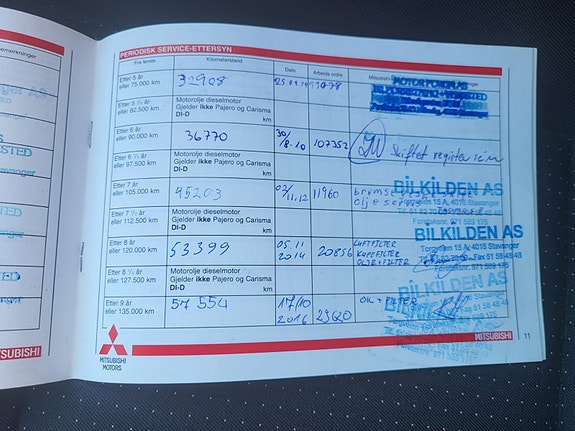 emerkninger
PERIODISK SERVICE-ETTERSYN
Kilometerstand
Dato
Arbeids ordre
Etter 5 år
eller 75.000 km
32908
Motorolje dieselmotor
eller 82.500 km
Gjelder ikke Pajero og Carisma
DI-D
km
Etter 6 år
eller 90.000 km
36770
30/
8-10
107352
Skiftet registerreim
Motorolje dieselmotor
eller 97.500 km
Gjelder ikke Pajero og Carisma
DI-D
km
Etter 7 år
eller 105.000 km
45203
02/
11.12
11960
BILKILDEN AS
Torgveien 15 A, 4016 Stavanger
Etter 7 ½ år
eller 112.500 km
Motorolje dieselmotor
Gjelder ikke Pajero og Carisma
DI-D
km
BILKILDEN AS
Torgveien 15 A, 4016 Stavanger
Etter 8 år
eller 120.000 km
53399
05.11
2014
20856
LUFTFILTER
KUPEFILTER
OLJE+FILTER
Fax 51 58 48 48
Foretaksnr. 971 589 175
Etter 8 ½ år
eller 127.500 km
Motorolje dieselmotor
Gjelder ikke Pajero og Carisma
DI-D
km
BILKILDEN AS
Etter 9 år
eller 135.000 km
57 554
17/10
2016
BILKILDEN AS
MITSUBISHI
MOTORS
MITSUBISHI
11
TSUBISHI